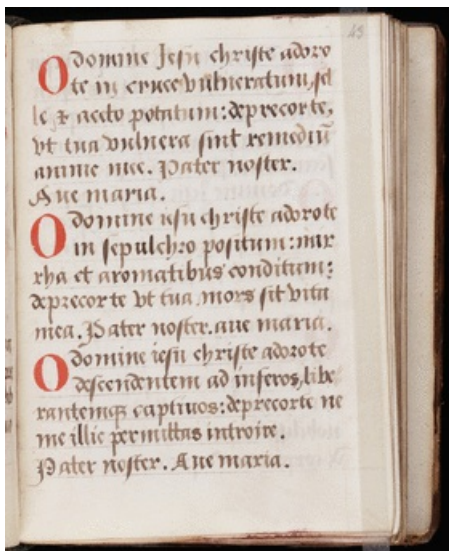 43
O domine Jesu christe adoro
te in cruce vulneratum, fel
le & aceto potatum: deprecorte,
vt tua vulnera sint remediū
anime mee. Pater noster.
Aue maria.
O domine iesu christe adorote
in sepulchro positum: mir
rha et aromatibus conditum:
deprecorte vt tua mors sit vita
mea. Pater noster. aue maria.
O domine iesu christe adorote
descendentem ad inferos, libe
rantemqz captiuos: deprecorte ne
me illic permittas introire.
Pater noster. Aue maria.